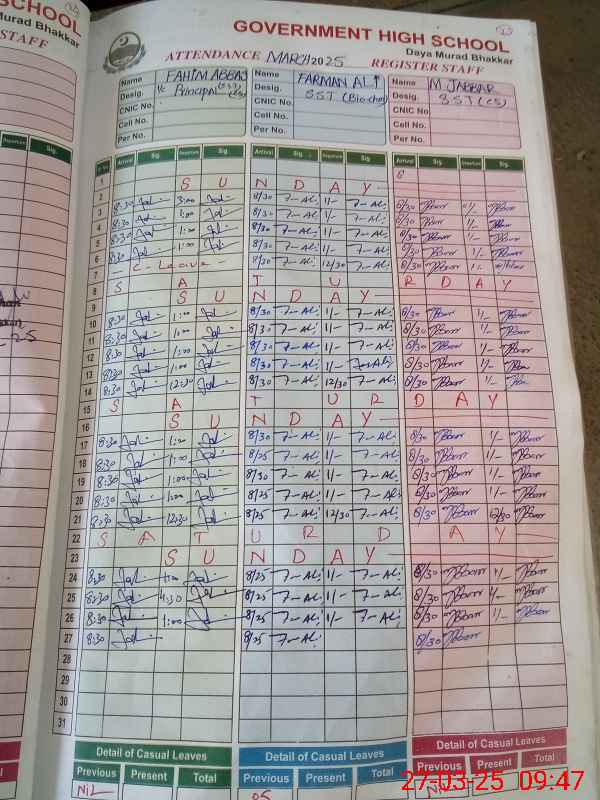 SCHOOL
Murad Bhakkar
STAFF
GOVERNMENT HIGH SCHOOL
Daya Murad Bhakkar
ATTENDANCE MARCH 2025 REGISTER STAFF
Name FAHIM ABBAS Name FARMAN ALI Name M JABBAR
Desig. Principal Desig. SST (Bio-chem) Desig. SST (CS)
CNIC No. CNIC No. CNIC No.
Cell No. Cell No. Cell No.
Per No. Per No. Per No.
Arrival Sig. Departure Sig. Arrival Sig. Departure Sig. Arrival Sig. Departure Sig.
1
2 S U N D A Y
3 8:30 3:00 8/30 F-Ali 1/- F-Ali 8/30 1/-
4 8:30 1:00 8/30 F-Ali 1/- F-Ali 8/30 1/-
5 8:30 1:00 8/30 F-Ali 1/- F-Ali 8/30 1/-
6 8:30 1:00 8/30 F-Ali 1/- F-Ali 8/30 1/-
7 - C-Leave - 8/30 F-Ali 12/30 F-Ali 8/30 1/-
8 S A T U R D A Y
9 S U N D A Y
10 8:30 1:00 8/30 F-Ali 1/- F-Ali 8/30 1/-
11 8:30 1:00 8/30 F-Ali 1/- F-Ali 8/30 1/-
12 8:30 1:00 8/30 F-Ali 1/- F-Ali 8/30 1/-
13 8:30 1:00 8/30 F-Ali 1/- F-Ali 8/30 1/-
14 8:30 12:30 8/30 F-Ali 12/30 F-Ali 8/30 1/-
15 S A T U R D A Y
16 S U N D A Y
17 8:30 1:00 8/30 F-Ali 1/- F-Ali 8/30 1/-
18 8:30 1:00 8/25 F-Ali 1/- F-Ali 8/30 1/-
19 8:30 1:00 8/30 F-Ali 1/- F-Ali 8/30 1/-
20 8:30 1:00 8/25 F-Ali 1/- F-Ali 8/30 1/-
21 8:30 12:30 8/25 F-Ali 12/30 F-Ali 8/30 12/30
22 S A T U R D A Y
23 S U N D A Y
24 8:30 1:00 8/25 F-Ali 1/- F-Ali 8/30 1/-
25 8:30 1:30 8/25 F-Ali 1/- F-Ali 8/30 1/-
26 8:30 1:00 8/25 F-Ali 1/- F-Ali 8/30 1/-
27 8:30 8/25 F-Ali 8/30
28
29
30
31
Detail of Casual Leaves Detail of Casual Leaves Detail of Casual Leaves
Previous Present Total Previous Present Total Previous Present Total
NiL 05
27-03-25 09:47